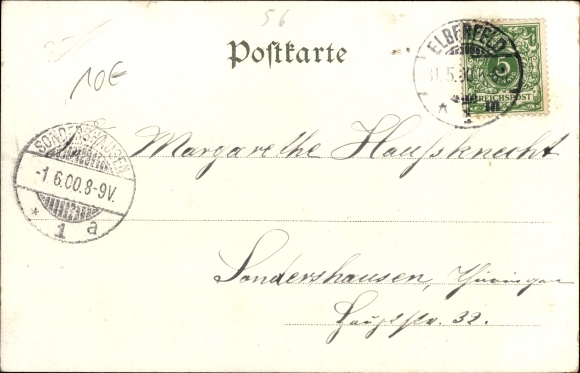 56
Postkarte
10€
ELBERFELD
31.5.00
5
REICHSPOST
Margarethe Haussknecht
SONDERSHAUSEN
-1.6.00.8-9V.
* 1 a
Sondershausen, Thüringen
Hauptstr. 32.